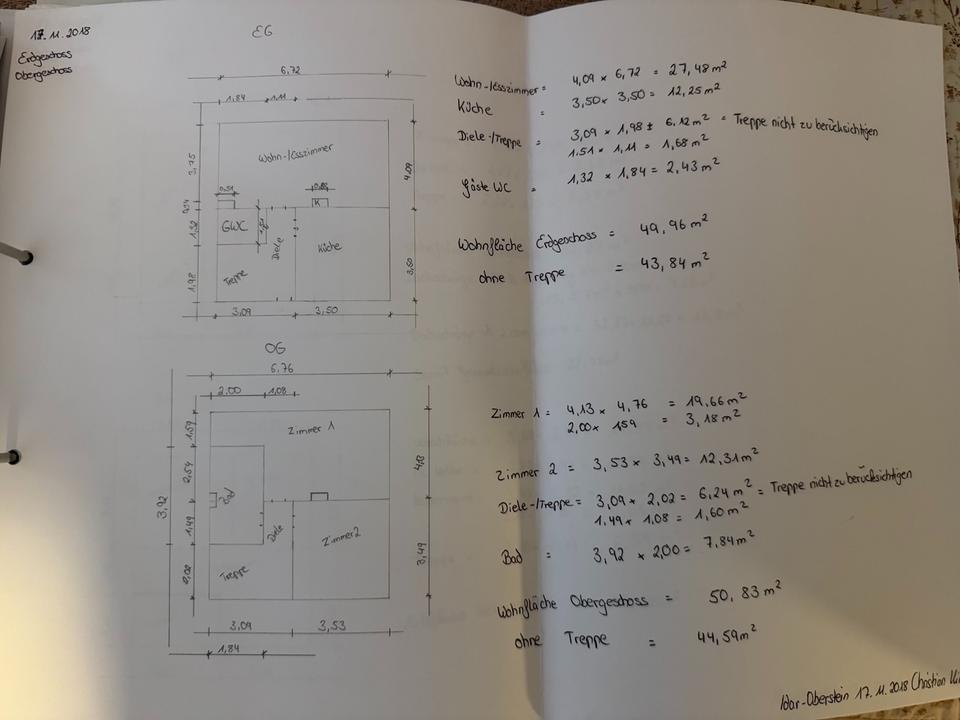 17.11.2018
Erdgeschoss
Obergeschoss
EG
6,72
1,84 1,11
3,75
Wohn-/Esszimmer
4,09
0,34
0,51
K
GWC
1,32
Diele
Küche
Treppe
1,98
3,50
3,09 3,50
OG
6,76
2,00 1,08
1,59
Zimmer 1
4,13
2,54
3,92
Bad
1,49
Diele
Zimmer 2
3,49
Treppe
3,09 3,53
1,84
Wohn-/Esszimmer = 4,09 x 6,72 = 27,48 m²
Küche = 3,50 x 3,50 = 12,25 m²
Diele-/Treppe = 3,09 x 1,98 = 6.12 m² = Treppe nicht zu berücksichtigen
1.51 x 1,11 = 1,68 m²
Gäste WC = 1,32 x 1,84 = 2,43 m²
Wohnfläche Erdgeschoss = 49,96 m²
ohne Treppe = 43,84 m²
Zimmer 1 = 4,13 x 4,76 = 19,66 m²
2,00 x 1,59 = 3,18 m²
Zimmer 2 = 3,53 x 3,49 = 12,31 m²
Diele-/Treppe = 3,09 x 2,02 = 6,24 m² = Treppe nicht zu berücksichtigen
1,49 x 1,08 = 1,60 m²
Bad = 3,92 x 2,00 = 7,84 m²
Wohnfläche Obergeschoss = 50,83 m²
ohne Treppe = 44,59 m²
Idar-Oberstein 17.11.2018 Christian